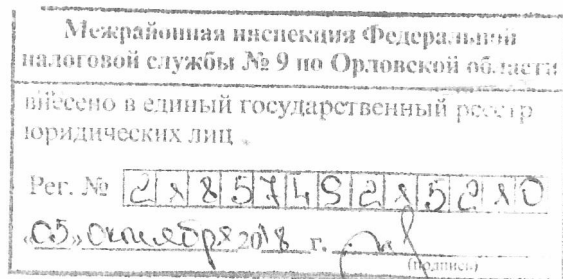 Межрайонная инспекция Федеральной
налоговой службы № 9 по Орловской области
внесено в единый государственный реестр
юридических лиц
Рег. №
«05» октября 2018 г.
(подпись)